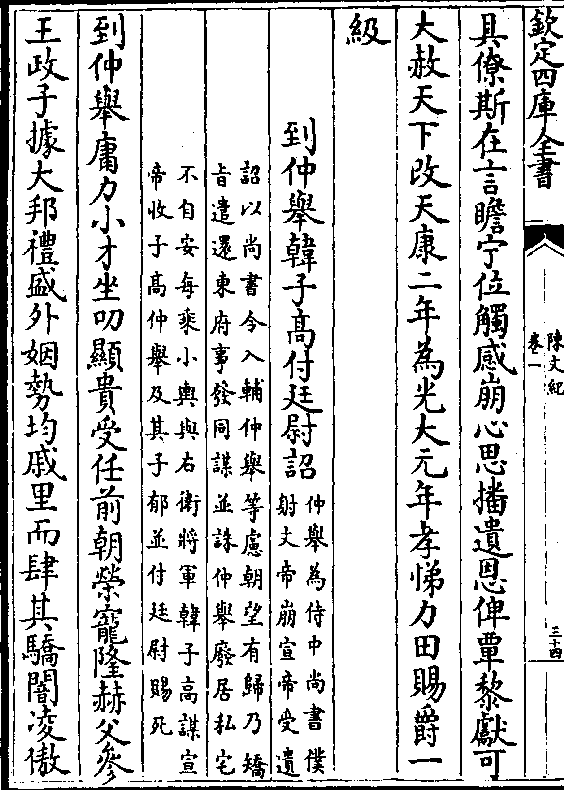 欽定四庫全書
陳文紀
卷一
三十四
具僚斯在言瞻宁位觸感崩心思播遺恩俾覃黎獻可
大赦天下改天康二年為光大元年孝悌力田賜爵一
級
到仲舉韓子髙付廷尉詔
仲舉為侍中尚書僕
射文帝崩宣帝受遺
詔以尚書令入輔仲舉等慮朝望有歸乃矯
旨遣還東府事發同謀並誅仲舉廢居私宅
不自安每乘小輿與右衛將軍韓子高謀宣
帝收子髙仲舉及其子郁並付廷尉賜死
到仲舉庸力小才坐叨顯貴受任前朝榮寵隆赫父參
王政子據大邦禮盛外姻勢均戚里而肆其驕闇凌傲